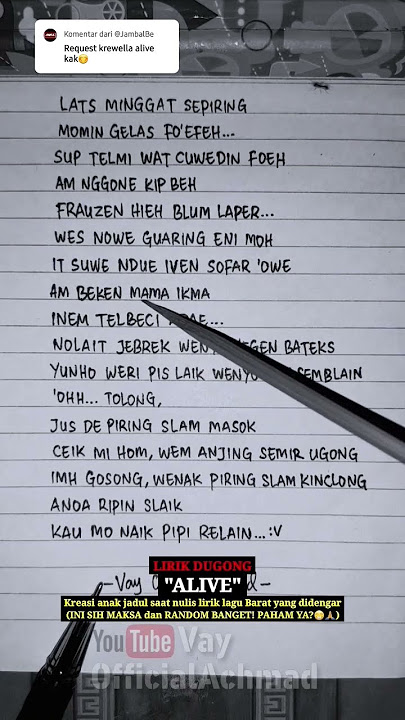 Komentar dari @JambalBe
Request krewella alive
kak😳
LATS MINGGAT SEPIRING
MOMIN GELAS FO'EFEH...
SUP TELMI WAT CUWEDIN FOEH
AM NGGONE KIP BEH
FRAUZEN HIEH BLUM LAPER...
WES NOWE GUARING ENI MOH
IT SUWE NDUE IVEN SOFAR 'OWE
AM BEKEN MAMA IKMA
INEM TELBECI
NOLAIT JEBREK BATEKS
YUNHO WERI PIS LAIK SEMBLAIN
'OHH... TOLONG,
JUS DE PIRING SLAM MASOK
CEIK MI HOM, WEM ANJING SEMIR UGONG
IMH GOSONG, WENAK PIRING SLAM KINCLONG
ANOA RIPIN SLAIK
KAU MO NAIK PIPI RELAIN...:V
LIRIK DUGONG
"ALIVE"
-Vay
Kreasi anak jadul saat nulis lirik lagu Barat yang didengar
(INI SIH MAKSA dan RANDOM BANGET! PAHAM YA?😳🙏)
YouTube Vay
OfficialAchmad